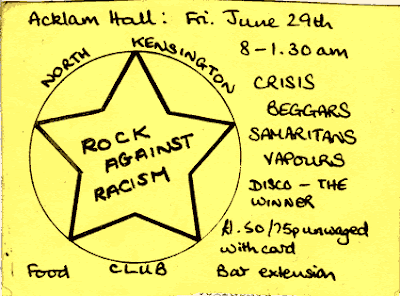 Acklam Hall: Fri. June 29th
8-1.30am
NORTH KENSINGTON
CRISIS
BEGGARS
SAMARITANS
VAPOURS
DISCO - THE
WINNER
ROCK
AGAINST
RACISM
£1.50/75p unwaged
with card
Food
CLUB
Bar extension